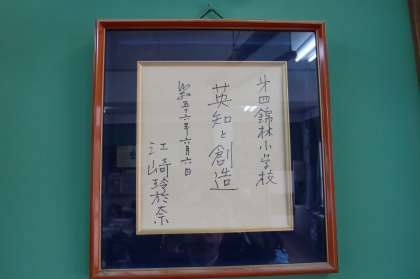 第四錦林小学校
英知と創造
昭和五十六年六月六日
江崎玲於奈